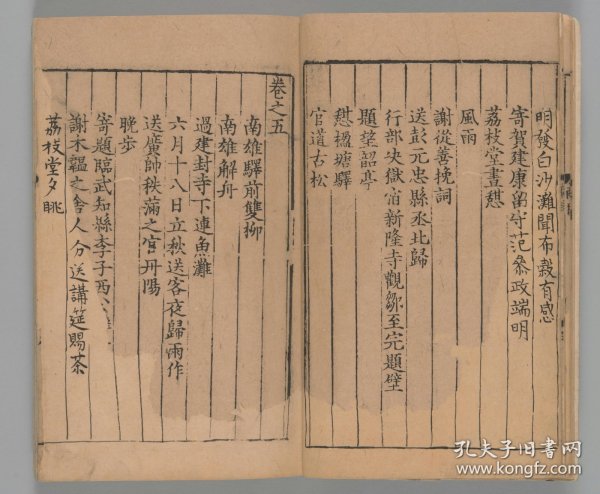 明發白沙灘聞布穀有感
寄賀建康留守范參政端明
荔枝堂晝憇
風雨
謝從善挽詞
送彭元忠縣丞北歸
行部決獄宿新隆寺觀鄒至完題壁
題望韶亭
憇楹塘驛
官道古松
卷之五
南雄驛前雙柳
南雄解舟
過建封寺下連魚灘
六月十八日立秋送客夜歸雨作
送廣帥秩滿之官丹陽
晚步
寄題臨武知縣李子西
謝木韞之舍人分送講筵賜茶
荔枝堂夕眺
孔夫子旧书网
www.kongfz.com